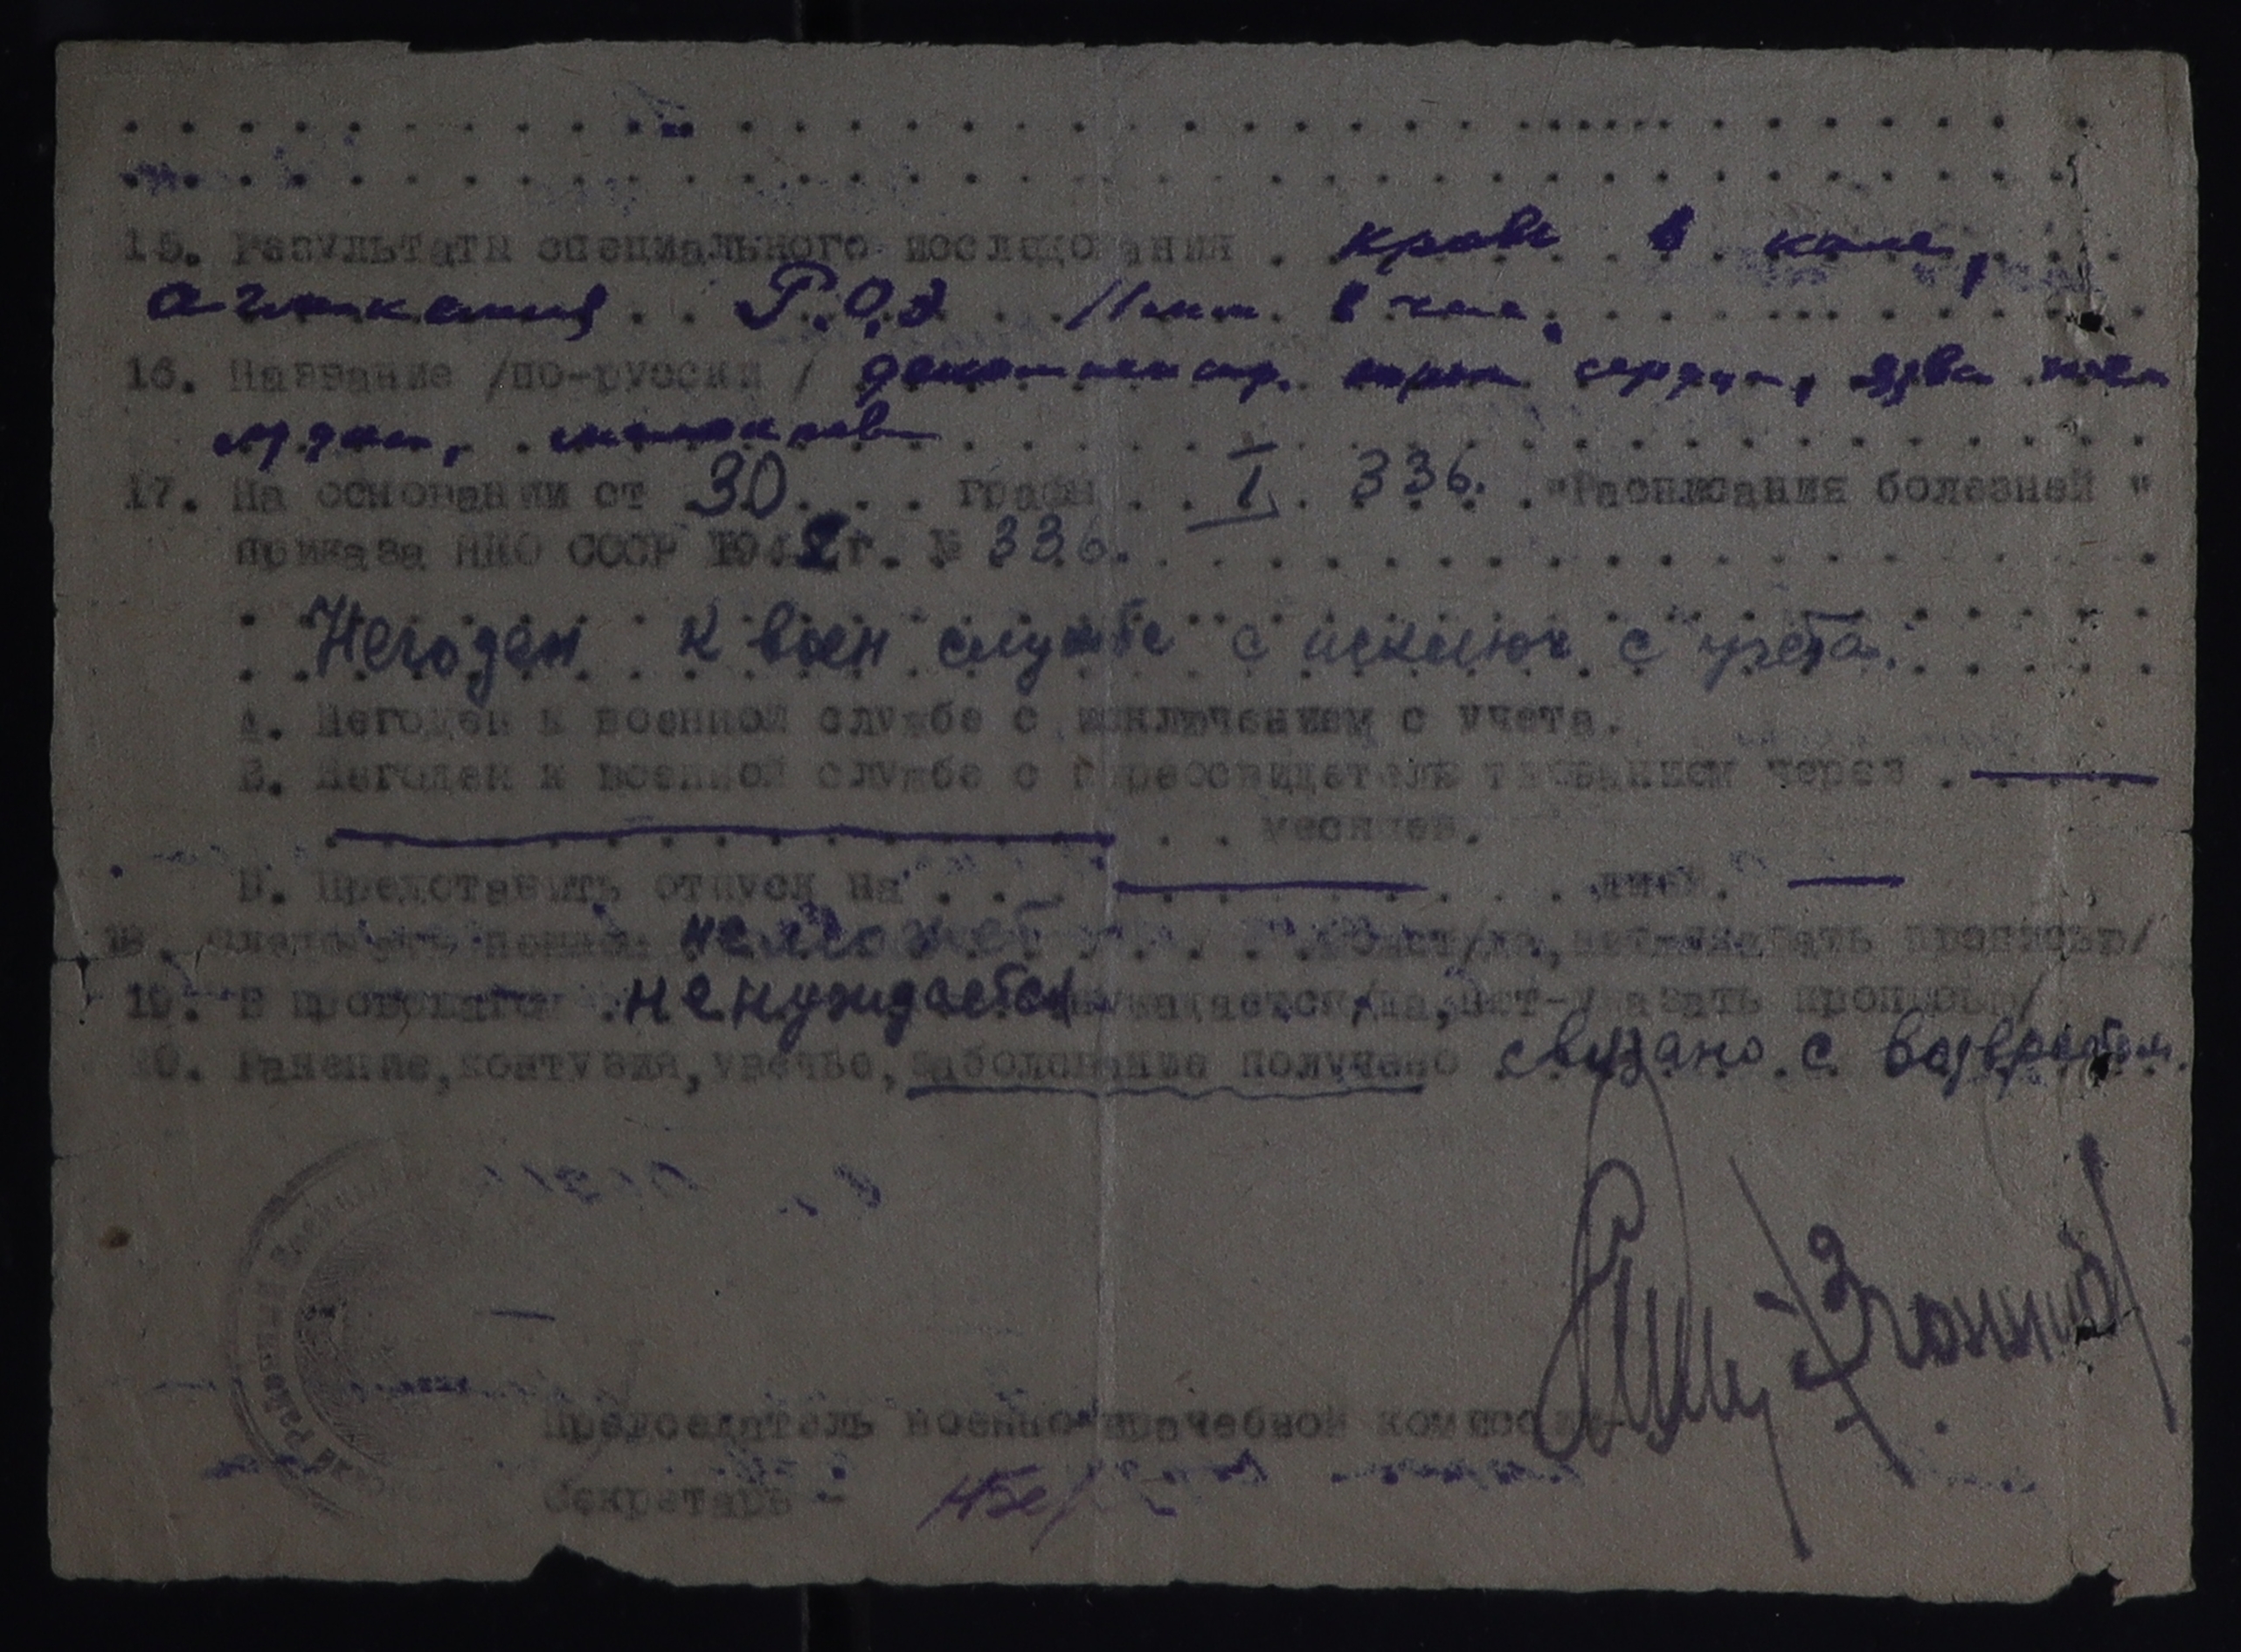 15. Результати специального исследования . кровь в кале,
Р.О.Э 11 мм. в час.
16. Название /по-русски / декомпенсир. порок сердца, язва
17. На основании ст 30 . . . графы . . I . 336. . "Расписания болезней "
приказа НКО СССР 1942 г. № 336.
Негоден к воен службе с исключ. с учета.
А. Негоден к военной службе с исключением с учета.
Б. Негоден к военной службе с переосвидетельствованием через .
. . месяцев.
В. Предоставить отпуск на . . . дней.
18. Следовать пешком может /да, нет-указать прописью/
19. В провожатом . ненуждается нуждается/да, нет-указать прописью/
20. Ранение, контузия, увечье, заболевание получено связано с возрастом.
Председатель военно-врачебной комиссии-
Секретарь -